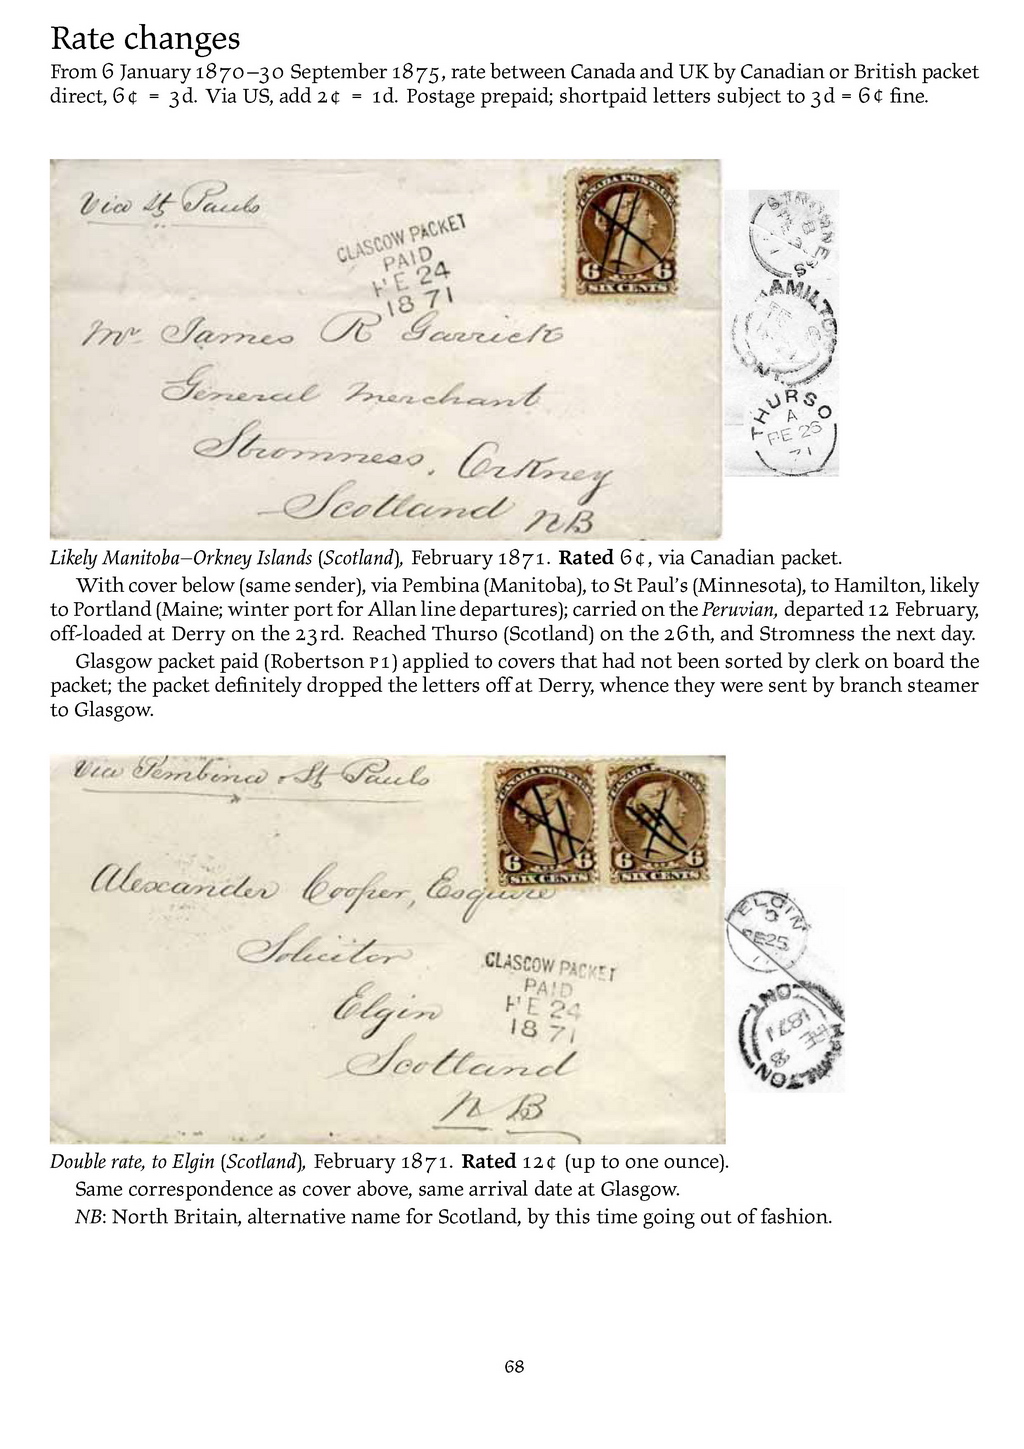 Rate changes
From 6 January 1870–30 September 1875, rate between Canada and UK by Canadian or British packet
direct, 6¢ = 3d. Via US, add 2¢ = 1d. Postage prepaid; shortpaid letters subject to 3d = 6¢ fine.
Via St Pauls
CANADA POSTAGE
6 6
SIX CENTS
GLASGOW PACKET
PAID
FE 24
1871
Mr James R Garrick
General Merchant
Stromness, Orkney
Scotland NB
STROMNESS
HAMILTON
ONT
THURSO
A
FE 26
71
Likely Manitoba–Orkney Islands (Scotland), February 1871. Rated 6¢, via Canadian packet.
With cover below (same sender), via Pembina (Manitoba), to St Paul's (Minnesota), to Hamilton, likely
to Portland (Maine; winter port for Allan line departures); carried on the Peruvian, departed 12 February,
off-loaded at Derry on the 23rd. Reached Thurso (Scotland) on the 26th, and Stromness the next day.
Glasgow packet paid (Robertson P1) applied to covers that had not been sorted by clerk on board the
packet; the packet definitely dropped the letters off at Derry, whence they were sent by branch steamer
to Glasgow.
Via Pembina & St Pauls
CANADA POSTAGE CANADA POSTAGE
6 6 6 6
SIX CENTS SIX CENTS
Alexander Cooper, Esquire
Solicitor
Elgin
Scotland
NB
GLASGOW PACKET
PAID
FE 24
1871
ELGIN
FE 25
71
HAMILTON
ONT
FE 8
1871
Double rate, to Elgin (Scotland), February 1871. Rated 12¢ (up to one ounce).
Same correspondence as cover above, same arrival date at Glasgow.
NB: North Britain, alternative name for Scotland, by this time going out of fashion.
68